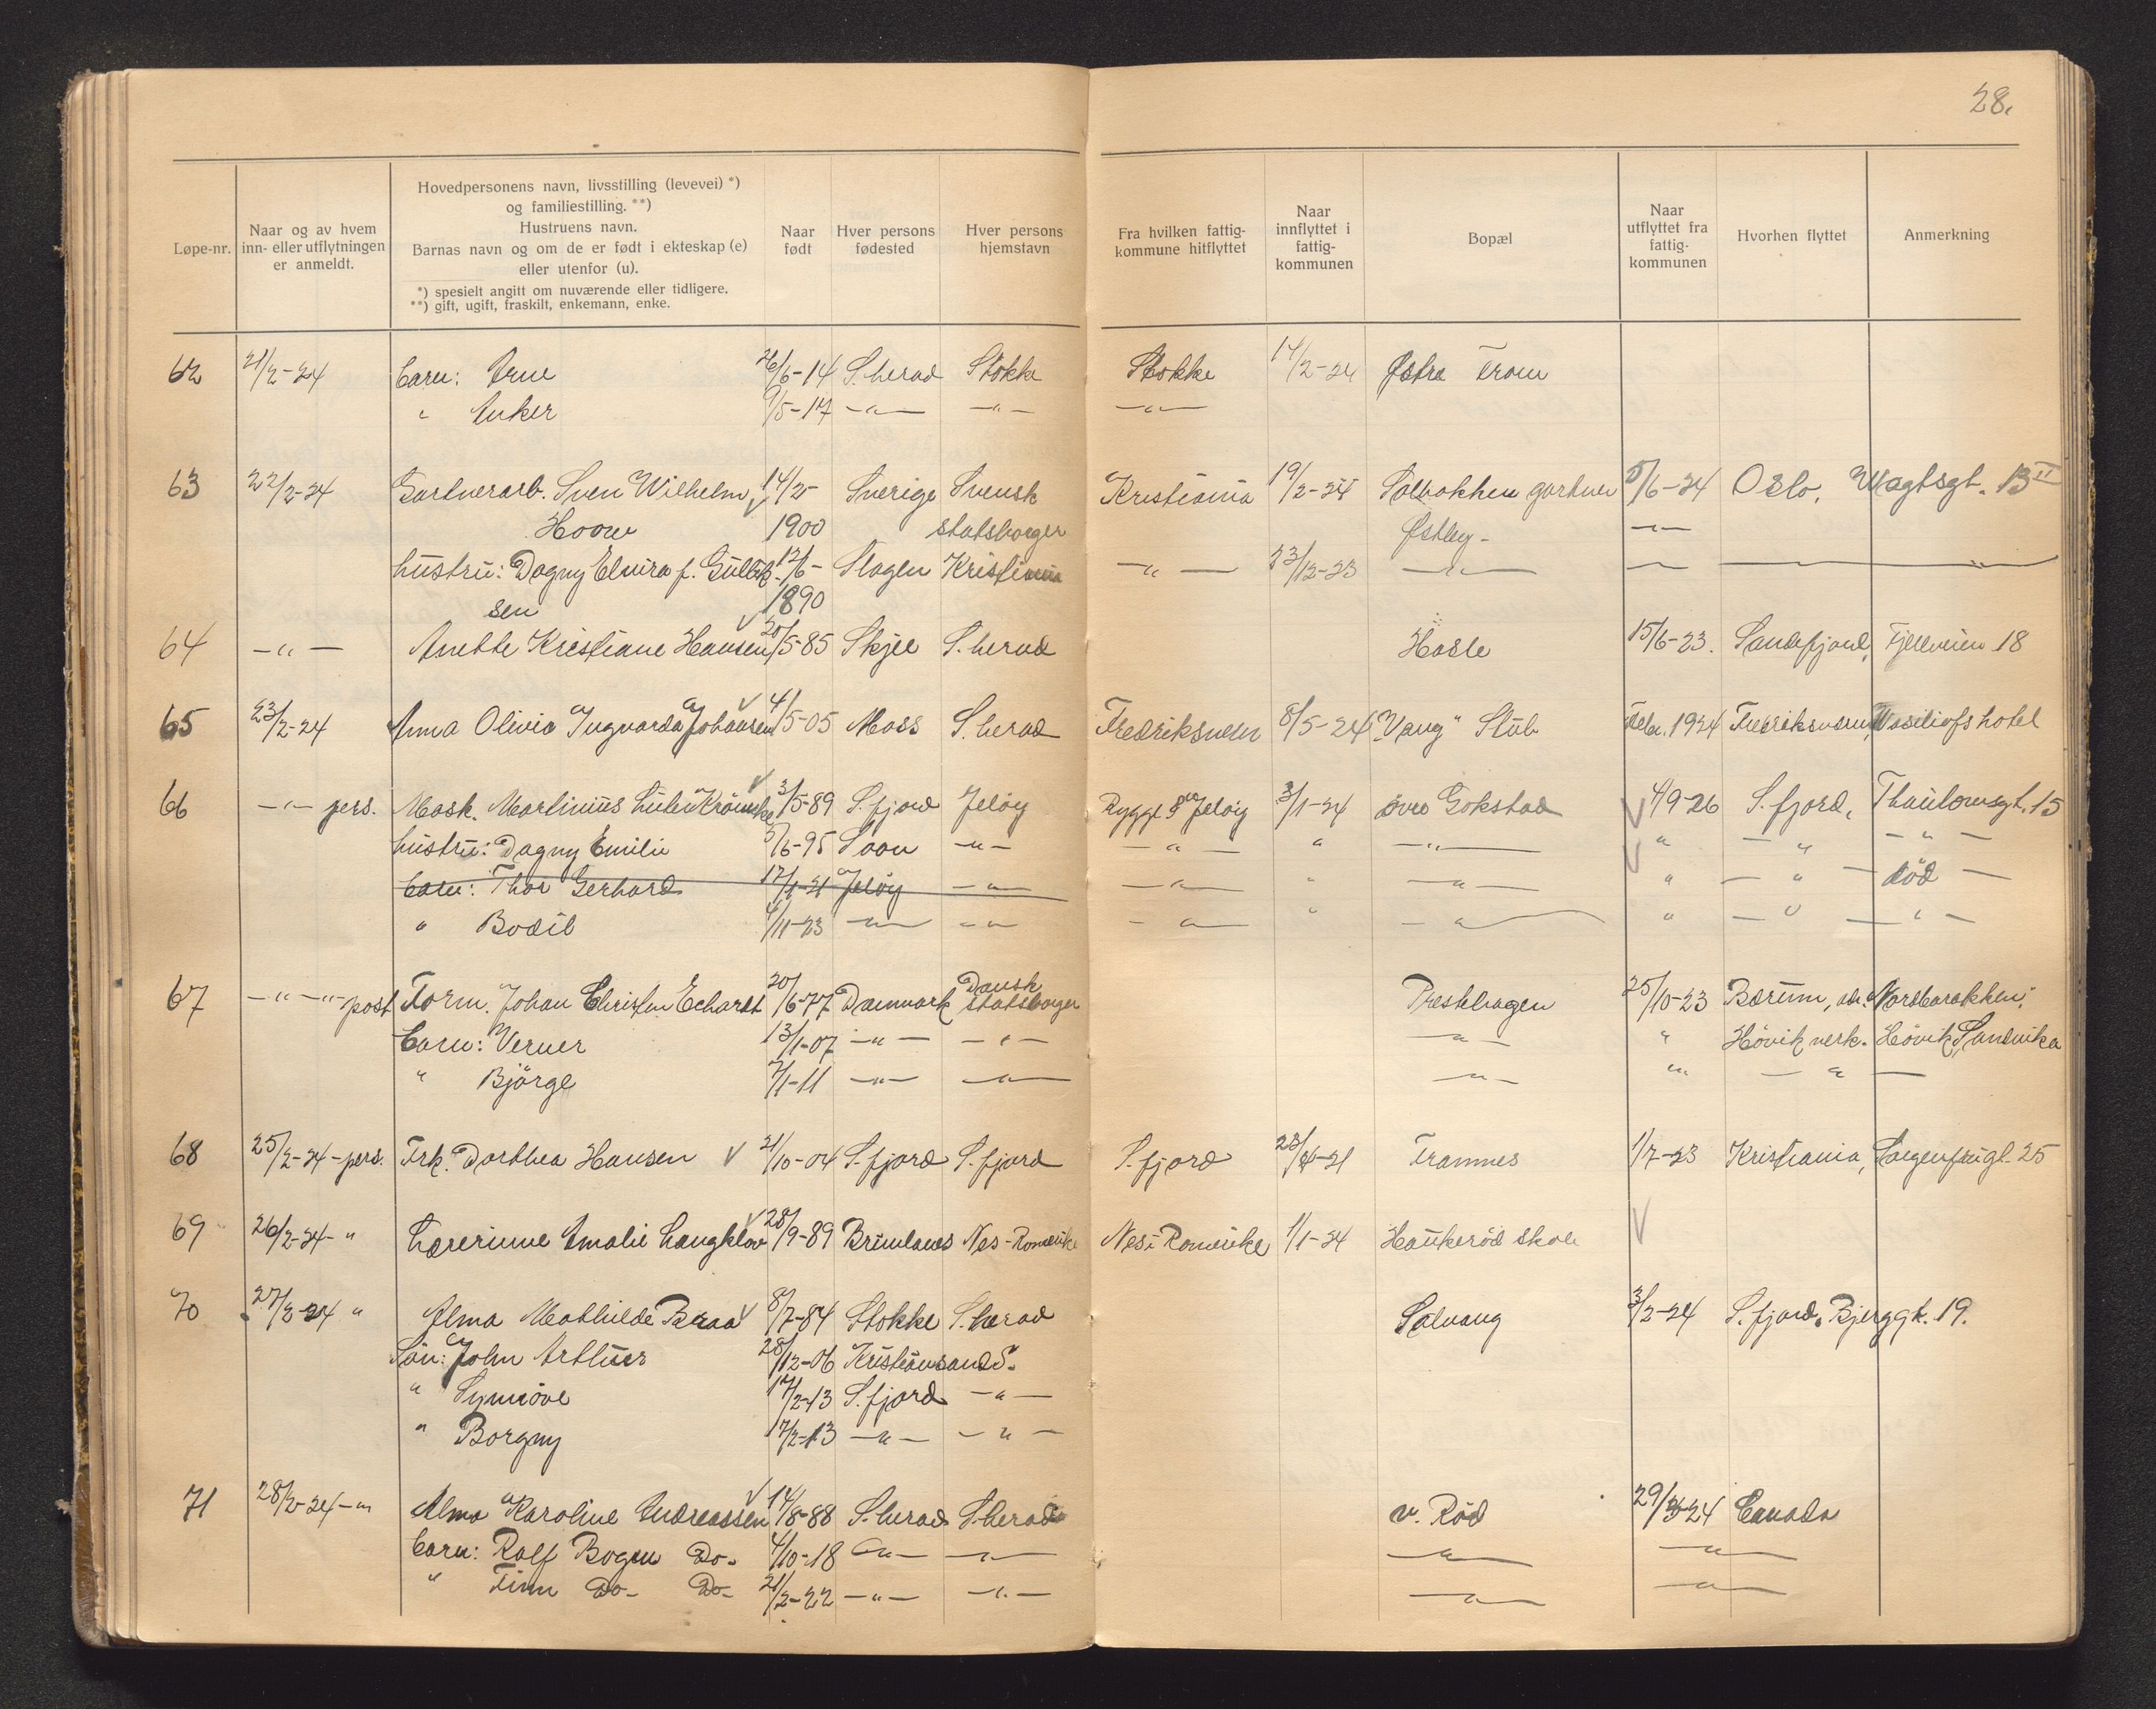 28.
Løpe-nr.
Naar og av hvem
inn- eller utflytningen
er anmeldt.
Hovedpersonens navn, livsstilling (levevei) *)
og familiestilling. **)
Hustruens navn.
Barnas navn og om de er født i ekteskap (e)
eller utenfor (u).
*) spesielt angitt om nuværende eller tidligere.
**) gift, ugift, fraskilt, enkemann, enke.
Naar
født
Hver persons
fødested
Hver persons
hjemstavn
Fra hvilken fattig-
kommune hitflyttet
Naar
innflyttet i
fattig-
kommunen
Bopæl
Naar
utflyttet fra
fattig-
kommunen
Hvorhen flyttet
Anmerkning
62 21/2-24 barn: Arne 26/6-14 S.herad Stokke Stokke 14/2-24 Østre
" Anker 9/5-17 -"- -"- -"-
63 22/2-24 Gartnerarb. Sven Wilhelm 14/2- Sverige Svensk Kristiania 19/2-24 Solbakken gartner 5/6-24 Oslo, Wagtsgt. 13 II
1900 statsborger Østby -"-
hustru: Dagny Elvira f. Gullik- 12/6- Slagen Kristiania -"- 23/12-23 -"- -"- -"-
sen 1890
64 -"- Anette Kristiane Hansen 20/5-85 Skjee S.herad Hasle 15/6-23. Sandefjord, Fjellveien 18
65 23/2-24 Anna Olivia Ingvarda Johansen 4/5-05 Moss S.herad Fredriksvern 8/5-24 "Vang" Stub Febr. 1924 Fredriksvern, Wassiliofs hotel
66 -"- pers. Mask. Martinius 3/5-89 S.fjord Jeløy Rygge Jeløy 3/1-24 øvre Gokstad 4/9-26 S.fjord, Thaulowsgt. 15
hustru: Dagny Emilie 5/6-95 Soon -"- -"- " -"- " -"- -"-
barn: Thor Gerhard 17/1-21 Jeløy -"- -"- " -"- " -"- død -
" Bodil 4/11-23 -"- -"- -"- " -"- " -"- -"-
67 -"- -"- post Form. Johan Christen Echardt 20/6-77 Danmark Dansk statsborger Præstehagen 25/10-23 Bærum, adr. "Nordbarakken",
barn: Verner 13/1-07 -"- -"- -"- " Høvik verk. Høvik, Sandvika
" Bjørge 7/1-11 -"- -"- -"- " -"-
68 25/2-24-pers. Frk. Dorthea Hansen 21/10-04 S.fjord S.fjord S.fjord 23/4-21 Framnes 1/7-23 Kristiania, Sorgenfrigt. 25
69 26/2-24-" Lærerinne Amalie Langklov 28/9-89 Brunlanes Nes-Romerike Nes i Romerike 1/1-24 Haukerød skole
70 27/2-24 " Alma Mathilde Braa 8/7-84 Stokke S.herad Solvang 3/2-24 S.fjord, Bjerggt. 19.
Søn: John Arthur 28/12-06 Kristiansand S.
" Synnøve 17/2-13 S.fjord -"-
" Borgny 17/2-13 -"- -"-
71 28/2-24-" Alma Karoline Andreassen 14/8-88 S.herad S.herad v. Rød 29/2-24 Canada
barn: Rolf Bogen Do. 4/10-18 -"- -"- -"- -"-
" Finn Do- Do- 21/2-22 -"- -"- -"- -"-